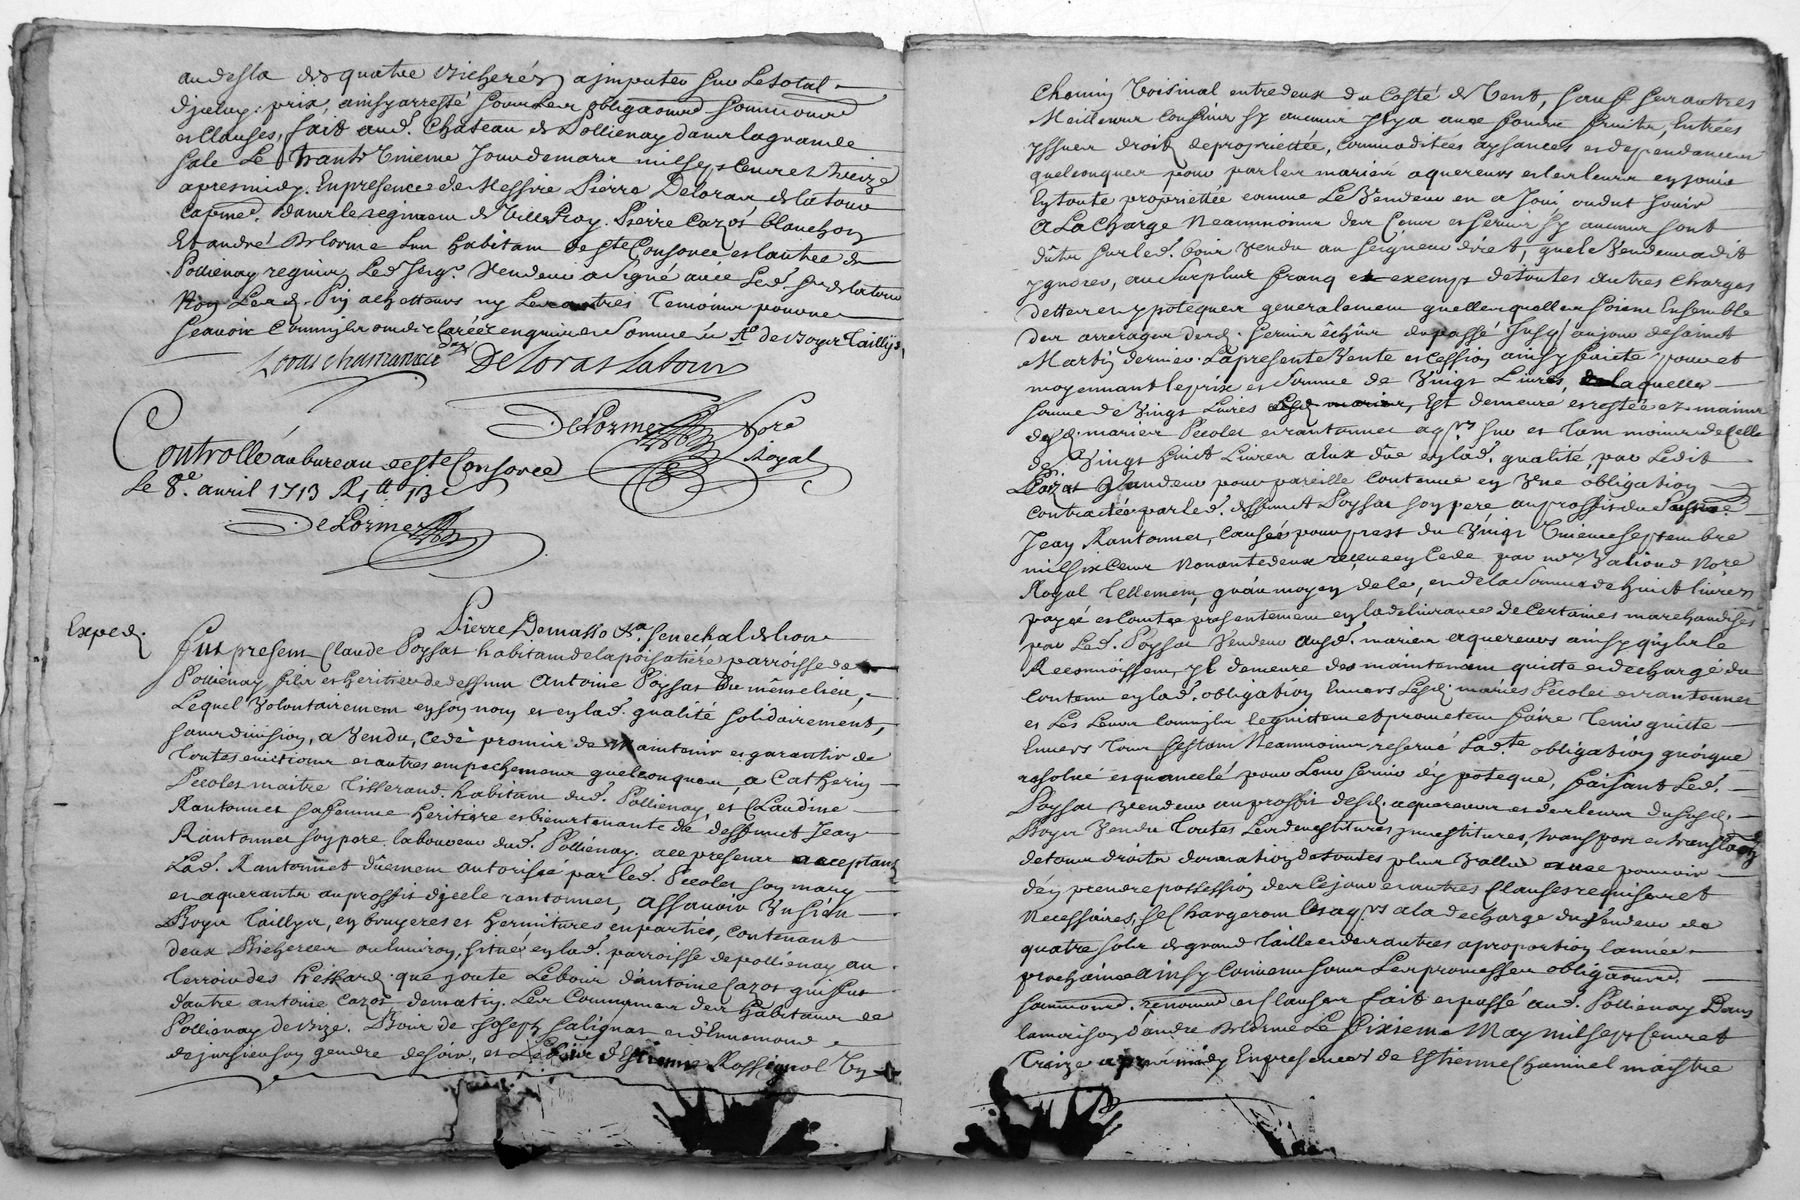 au desla des quatre bicherées a jmputer sur le total
djceluy prix, ainsy arresté soubs leur obligaõns soumissions
et clauses, fait aud. Chateau de Pollienay dans la grande
sale Le trante unieme Jour de mars mil sept cent et treize
apres midy. En presence de Messire Pierre Deloras de latour
capne. dans le regiment de Villeroy, Pierre Cazot blanchon
Et andré Delorme L'un habitant de ste Consorce et l'autre de
Pollienay requis, Led. seigr. Vendeur a signé avec Led. sr de latour
Non Lesd. Piy achetteurs ny Les autres temoins pour ne
scavoir comm'ils ont declarées enquis et sommé de Ro de Boyer Taillys
Loras chamanieu DeLoras Latour
DeLorme Nore
Royal
Controllé au bureau de ste Consorce
Le 8e. avril 1713 R 1 tt 13 s
DeLorme
Exped.
Pierre Demasso &a. senechal de lion
Fut present Claude Poysat habitant de la poisatiere parroisse de
Pollienay fils et heritier de deffunt Antoine Poysat Du même lieu,
Lequel Volontairement en son nom et en lad. qualité solidairement,
sans division, a Vendu, cedé promis de Maintenir et garantir de
toutes evictions et autres empechemens quelconques, a Catherin
Pecolet maitre tisserand habitant dud. Pollienay, et Claudine
Rantonnet sa femme Heritiere et bientenante de deffunct Jean
Rantonnet son pere laboureur dud. Pollienay. a ce present acceptant
Lad. Rantonnet dûement autorisée par led. Pecolet son mary
et aquerants au proffit djcelle rantonnet, assavoir Un sien
Boys Taillys, en bruyeres et hermitures en partie, contenant
deux Bicherées ou environ, situé en lad. parroisse de pollienay au
terroir des que joute Le bois d'antoine Cazot qui fut
d'autre antoine Cazot de matin. Les Communes des habitans de
Pollienay de bize. Bois de Joseph Salignat et d'Ennemond
de jursieu son gendre de soir, et Le bois d'Estienne Rossignol Un
Chemin Voisinal entredeux du Costé de Vent, sauf ses autres
Meilleurs Confins sy aucuns Il y a avec fonds fruits, Entrées
yssues droits de proprietée, commoditées aysances et dependances
quelconques pour par les mariés aquereurs et les leurs en jouir
En toute proprietée comme Le Vendeur en a Joui ou dut Jouir
A La Charge Neanmoins des Cens et servis sy aucuns sont
dûts sur led. bois vendu au seigneur direct, que le Vendeur a dit
ygnorer, au surplus franq et exempt de toutes autres Charges
dettes et ypoteques generalement quelles quelles soient Ensemble
des arrerages desd. servis échûs du passé Jusq'au jour de saint
Martin dernier. La presente Vente et Cession ainsy faicte pour et
moyennant le prix et somme de Vingt Livres, laquelle
somme de Vingt Livres Est demeuré et restée ez mains
desd. mariés Pecolet et rantonnet aqrs sur et tant moins de Celle
de Vingt huict Livres a eux dûe en lad. qualité, par Ledit
Poisat Vandeur pour pareille contenue en Une obligation
contractée par led. deffunct Poysat son pere au proffit dud.
Jean Rantonnet, causée pour prest du Vingt Unieme septembre
mil six cent Nonante deux reçüe en Cede par me Valioud Nore
Royal Tellement, qu'au moyen de ce, et de la somme de huict livres
payée et comtée presentement en la delivrance de certaines marchandises
par Led. Poysat Vendeur Ausd. mariés aquereurs ainsy qu'ils le
Reconnoissent, yl demeure des maintenant quitte et dechargé du
Contenu en lad. obligation Envers Lesd. mariés Pecolet et rantonnet
et Les Leurs comm'ils le quittent et prometent faire tenir quitte
Envers Tous restant Neanmoins reservé Lad.te obligation quoique
resolue et quancelé pour Leur servir d'ypoteque, faisant Led.
Poysat Vendeur au proffit desd. aquereurs et des leurs du susd.
Boys Vendu toutes Les devestitures jnvestitures, transport et translation
de tous droits donnation de toutes plus Vallue avec pouvoir
d'en prendre possession des Cejour et autres Clauses requises et
Necessaires, se Chargeront lesd. aqrs a la decharge du Vendeur de
quatre sols de grand Taille et des autres a proportion l'année
prochaine Ainsy Convenu sous Les promesses obligaõns.
soumissions. renonons. et clauses fait et passé aud. Pollienay Dans
la maison d'andré Delorme Le sixieme May mil sept Cent et
Traize apres midy En presences de Estienne Chanuel maistre